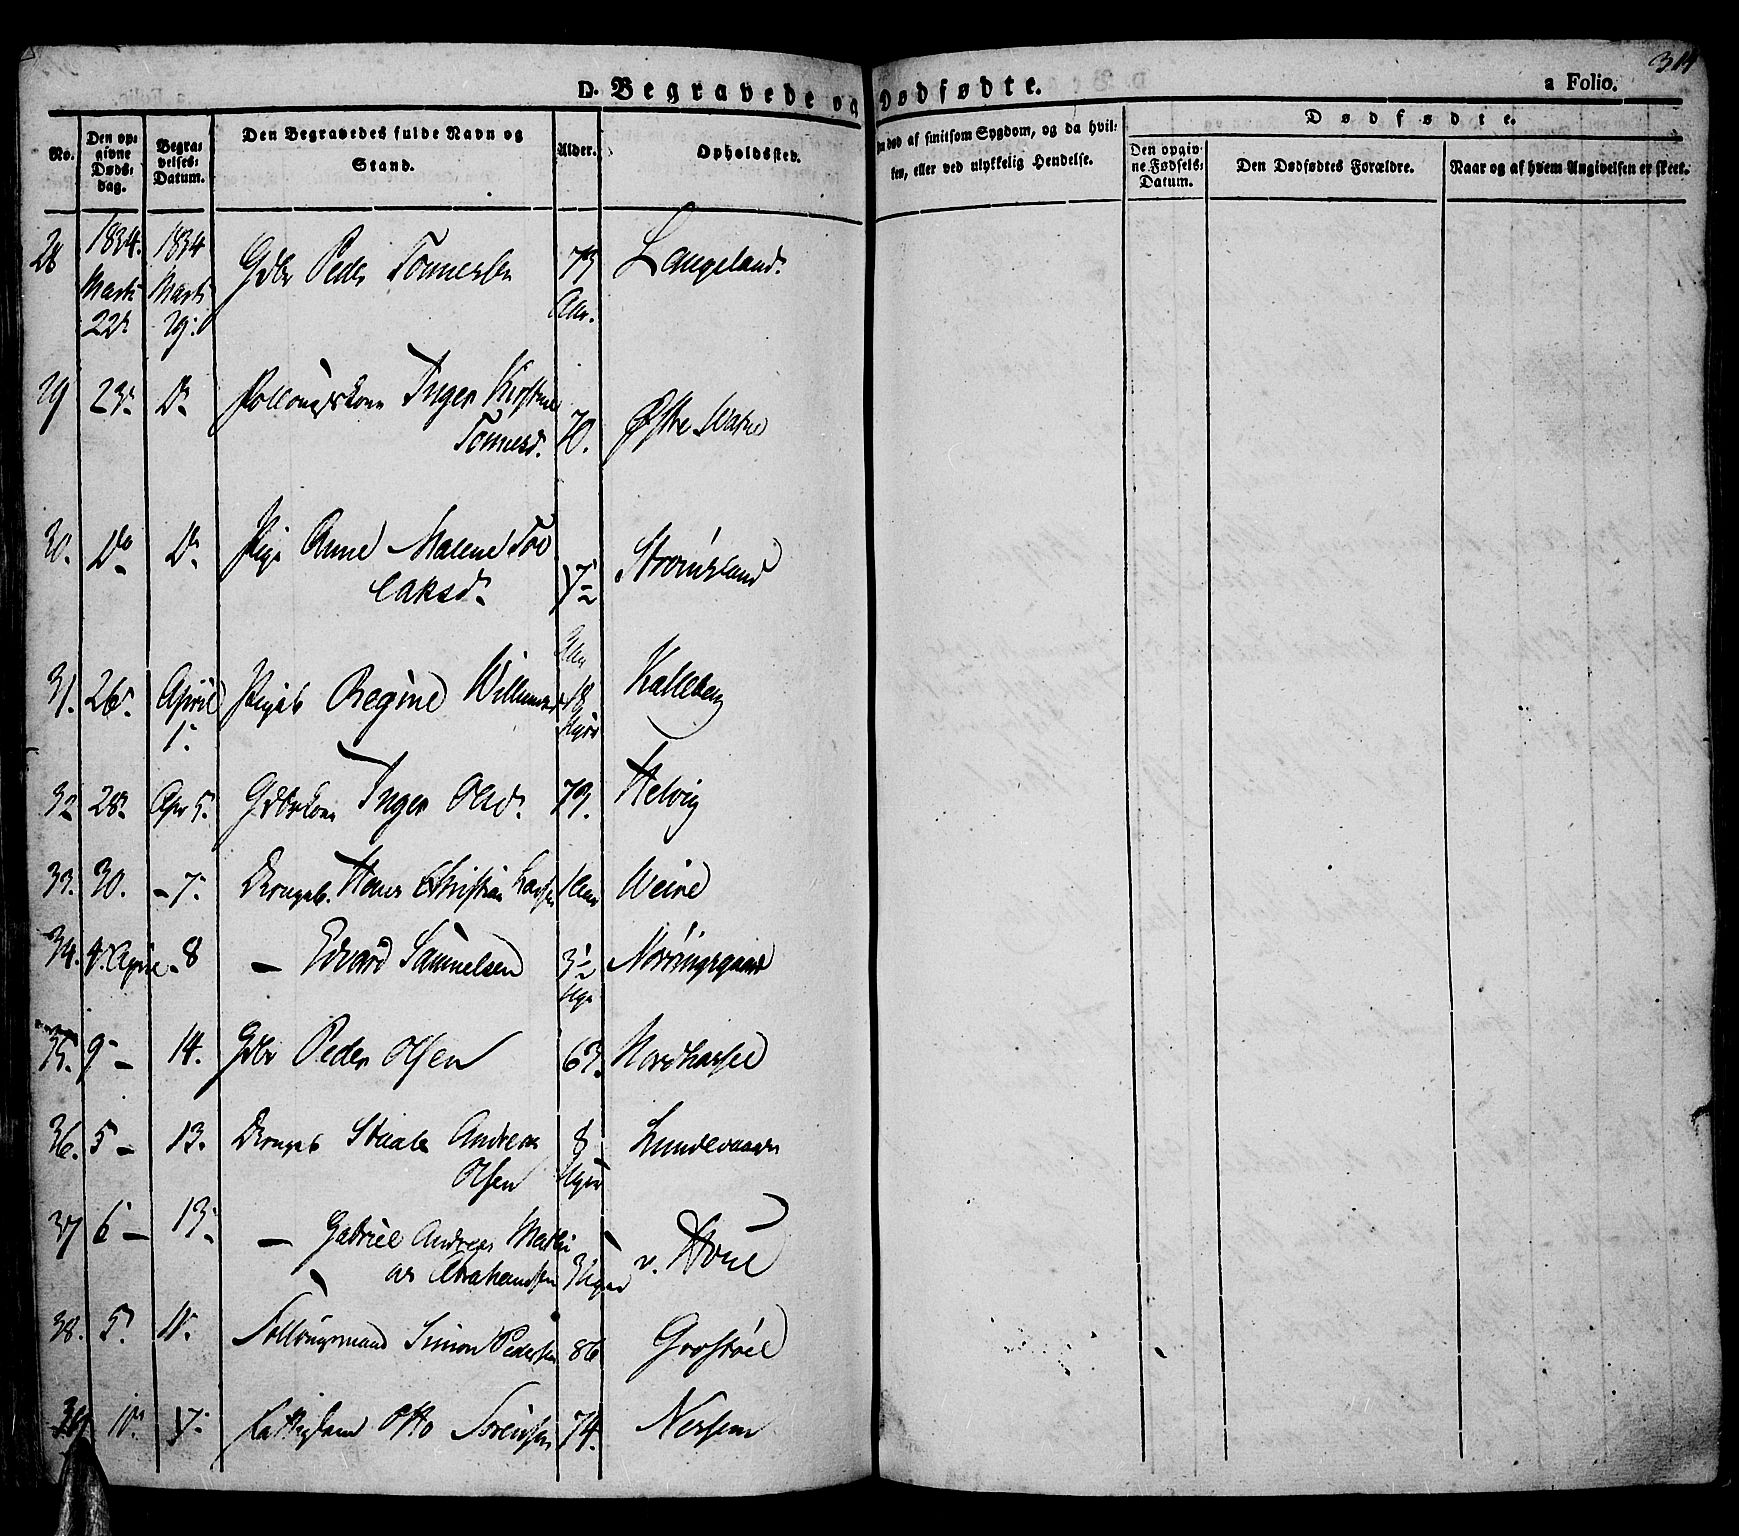 314
D. Begravede og Dødfødte.
a Folio.
No.
Den op-
givne
Døds-
dag.
Begra-
velses-
Datum.
Den Begravedes fulde Navn og
Stand.
Alder.
Opholdssted.
død af smitsom Sygdom, og da hvil-
ken, eller ved ulykkelig Hendelse.
Dødfødte.
Den opgiv-
ne Fødsels-
Datum.
Den Dødfødtes Forældre.
Naar og af hvem Angivelsen er skeet.
28 1834. Marts 22. 1834 Marts 29. Gdbr Peder Tonnesen 73 Aar. Langeland.
29 23. Do Inger Kirstine
Tonnesd. 70. Østre
30. Do Do Pige Anne Malene Tol
laksd. Strømsland
31. 26. April 1. Pigeb. Regine 18 Kalleberg
32 28. Apr 5. Gdbrkone Inger Olsd. 73. Helvig
33. 30. - 7. Drengeb. Hans Christian Larsen 1 Aar
34. 4. April - 8 — Edvard Samuelsen 3½
35. 9 - 14. Gdbr Peder Olsen 63. Nordhassel
36. 5 - 13. Drengeb Staale Andreas
Olsen 8 Uger Lundevaagen
37 6 - 13. — Gabriel Andreas Mathi
as Abrahamsen 3 Uger v. Houe
38. 5. 11. Simon Pedersen 86 Grostøl
39 Otto Sørensen 74. Nesheim